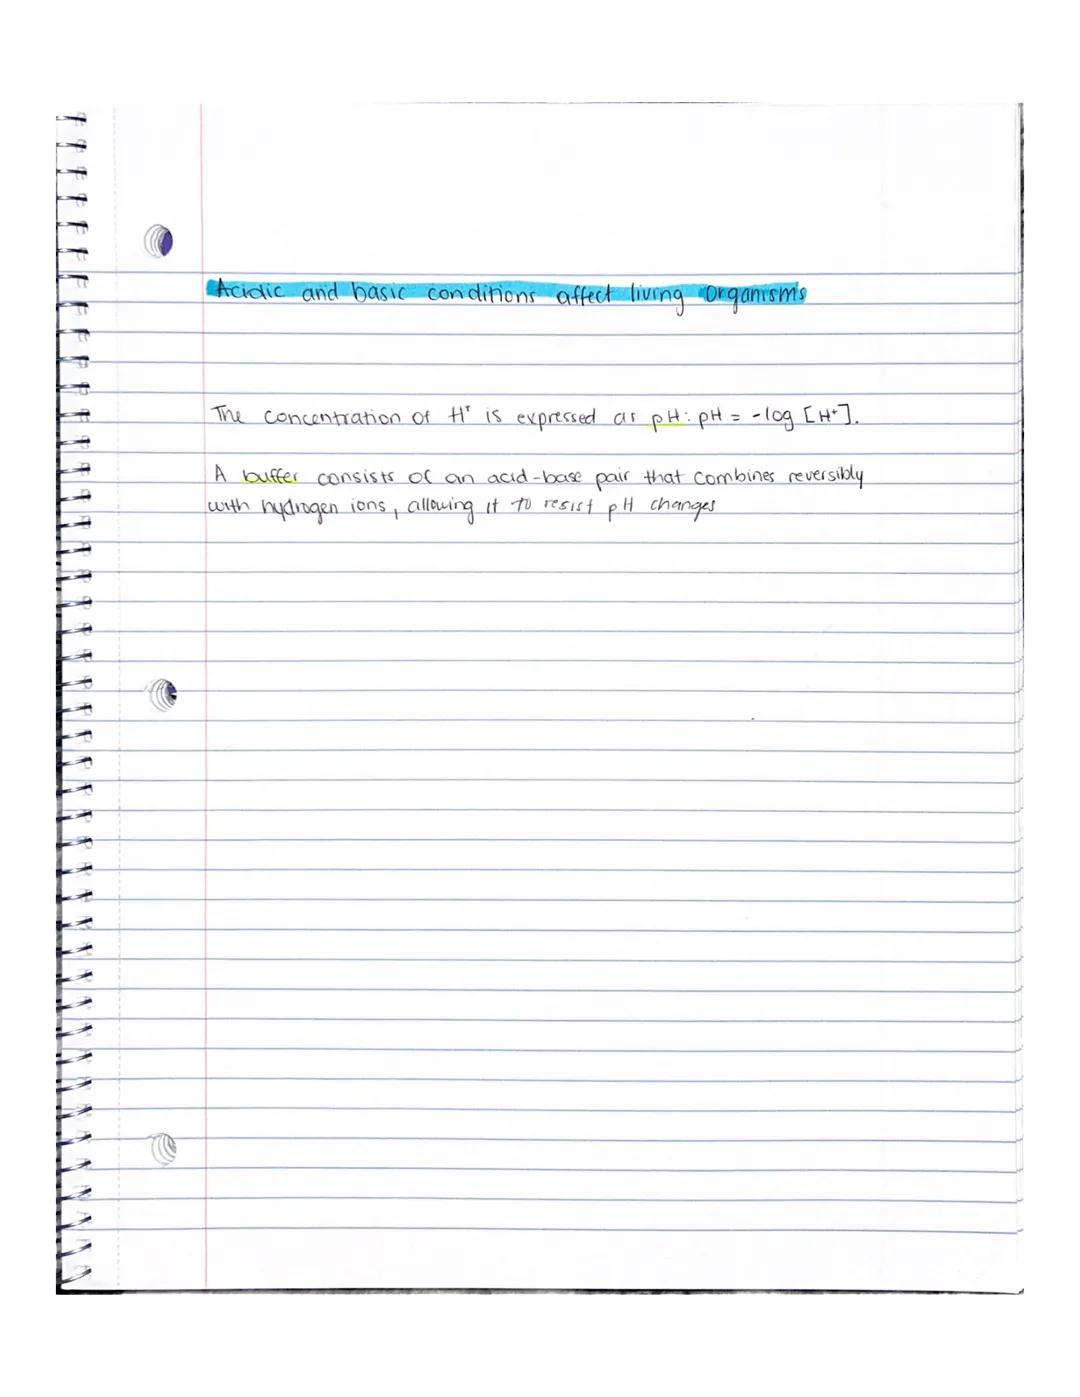 Acidic and basic conditions affect living organisms
The concentration of H⁺ is expressed as pH: pH = -log [H⁺].
A buffer consists of an acid-base pair that combines reversibly
with hydrogen ions, allowing it to resist pH changes